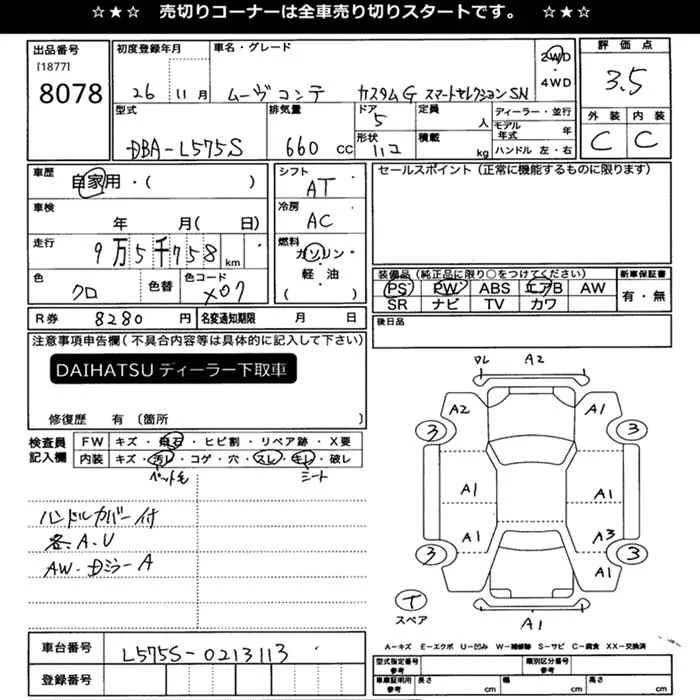 ☆ ★ ☆ 売切りコーナーは全車売り切りスタートです。 ☆ ★ ☆
出品番号
[1877]
8078
初度登録年月
26 11 月
車名・グレード
ムーヴコンテ カスタムG スマートセレクションSN
2WD
4WD
評価点
3.5
型式
DBA-L575S
排気量
660 CC
ドア
5
形状
ハコ
定員
人
積載
kg
ディーラー・並行
モデル年式 年
ハンドル 左・右
外装 内装
C C
車歴
自家用・( )
車検
年 月( 日)
走行
9万5千758 km
色
クロ
色替
色コード
X07
シフト
AT
冷房
AC
燃料
ガソリン
軽・油
( )
セールスポイント(正常に機能するものに限ります)
装備品(純正品に限り○をつけてください)
PS PW ABS エアB AW
SR ナビ TV カワ
新車保証書
有・無
R券 8280 円
名変通知期限 月 日
後日品
注意事項申告欄(不具合内容等は具体的に記入して下さい)
DAIHATSU ディーラー下取車
修復歴 有 〔箇所 〕
検査員記入欄
FW キズ・飛石・ヒビ割・リペア跡・X要
内装 キズ・汚レ・コゲ・穴・スレ・キレ・破レ
ペット毛 シート
ハンドルカバー付
各A.U
AW・Dミラー A
A2
A2
A1
3
3
A1
A1
A1
A3
3
3
A1
T
スペア
A1
車台番号
L575S-0213113
登録番号
A-キズ E-エクボ U-凹み W-補修跡 S-サビ C-腐食 XX-交換済
型式指定番号 参考
類別区分番号 参考
車庫証明用 参考
長さ cm
幅 cm
高さ cm